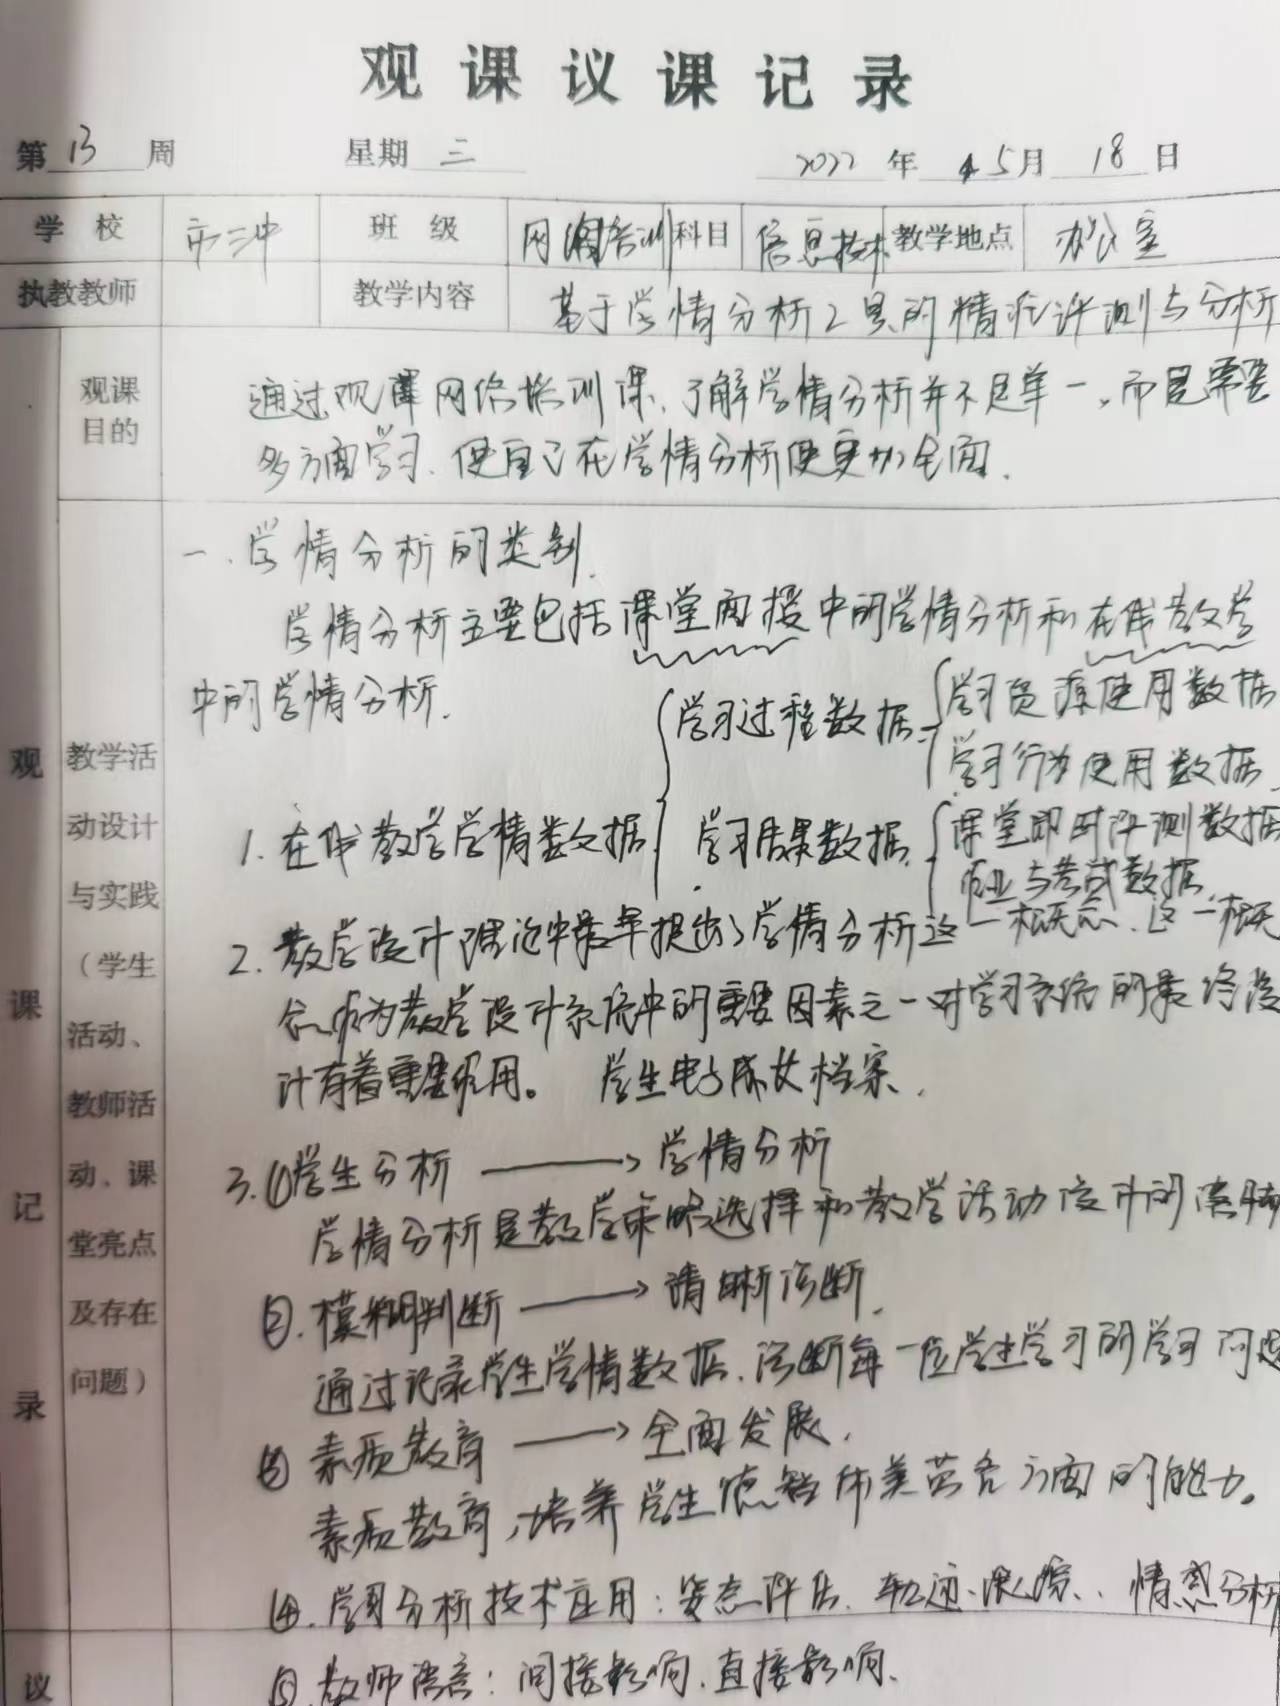 观课议课记录
第 13 周 星期 三 2022 年 5月 18 日
学校 市三中 班级 网络培训 科目 信息技术 教学地点 办公室
执教教师 教学内容 基于学情分析工具的精准评测与分析
观课目的
通过观课网络培训课、了解学情分析并不是单一,而是需要
多方面学习、使自己在学情分析使更加全面.
观课记录
教学活动设计与实践(学生活动、教师活动、课堂亮点及存在问题)
一、学情分析的类别.
学情分析主要包括课堂面授中的学情分析和在线教学
中的学情分析.
学习过程数据 学习资源使用数据
学习行为使用数据.
1. 在线教学学情类数据 学习结果数据. 课堂即时评测数据
作业与考试数据.
2. 教学设计理论中最早提出了学情分析这一概念、这一概
念作为教学设计系统中的重要因素之一对学习系统的最终设
计有着重要作用。 学生电子成长档案.
3. ①学生分析 → 学情分析
学情分析是教学策略选择和教学活动设计的
②. 模糊判断 → 清晰诊断.
通过记录学生学情数据、诊断每一位学生学习的学习问题
③ 素质教育 → 全面发展.
素质教育,培养学生德智体美劳各方面的能力。
④. 学习分析技术应用:姿态评估、轨迹跟踪、情感分析
⑤. 教师语言:间接影响、直接影响.
议